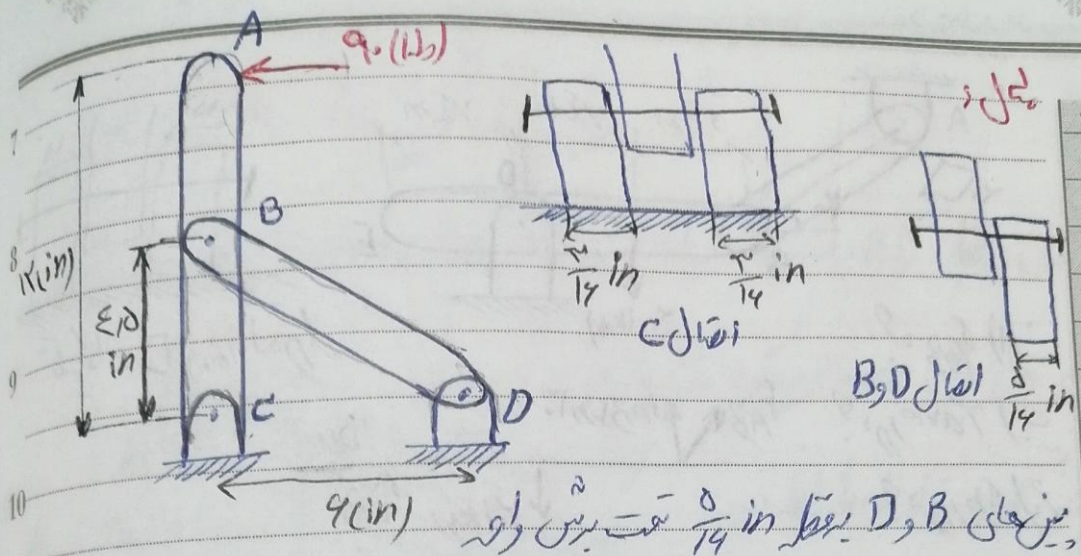 A
۹۰ (lb)
مثال:
B
۱۲ (in)
۴,۵
in
C
D
۶ (in)
۳/۱۶ in
۳/۱۶ in
اتصال C
اتصال B, D
۵/۱۶ in
پین‌های B و D به قطر ۵/۱۶ in تحت برش
7
8
9
10